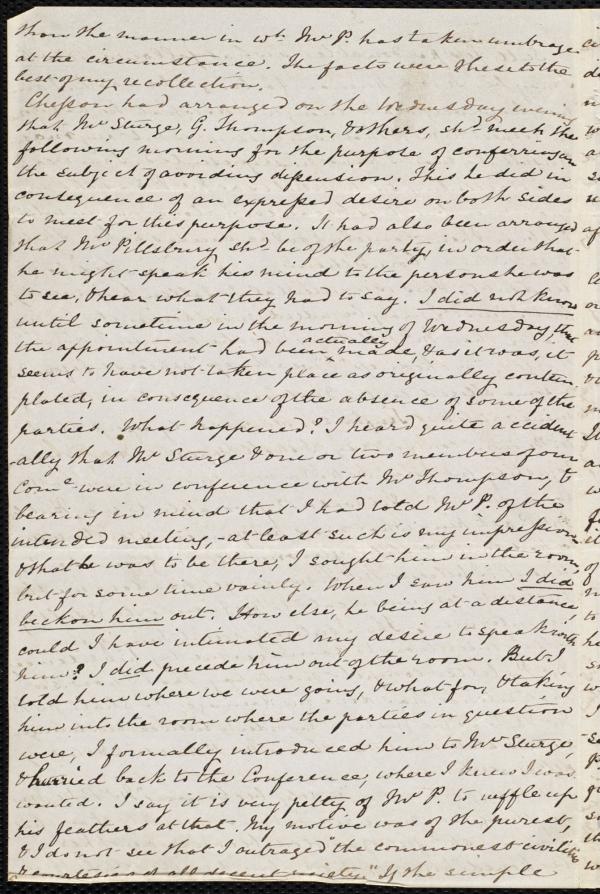 than the manner in wh. Mr P. has taken umbrage
at the circumstance. The facts were these to the
best of my recollection.
Chesson had arranged on the Wednesday evening
that Mr Sturge, G. Thompson, & others, shd. meet the
following morning for the purpose of conferring on
the subject of avoiding dissension. This he did in
consequence of an expressed desire on both sides
to meet for this purpose. It had also been arranged
that Mr Pillsbury shd. be of the party, in order that
he might speak his mind to the persons he was
to see, & hear what they had to say. I did not know
until sometime in the morning of Wednesday, that
the appointment had been actually made, & as it was, it
seems to have not taken place as originally contem-
plated, in consequence of the absence of some of the
parties. What happened? I heard quite accident
-ally that Mr Sturge & one or two members of our
Come. were in conference with Mr Thompson, &
bearing in mind that I had told Mr P. of the
intended meeting, - at least such is my impression
& that he was to be there, I sought him in the room,
but for some time vainly. When I saw him I did
beckon him out. How else, he being at a distance,
could I have intimated my desire to speak with
him? I did precede him out of the room. But I
told him where we were going, & what for, & taking
him into the room where the parties in question
were, I formally introduced him to Mr Sturge,
& hurried back to the Conference, where I knew I was
wanted. I say it is very petty of Mr P. to ruffle up
his feathers at that. My motive was of the purest,
& I do not see that I outraged "the commonest civilities
& courtesies of all decent society." If the simple